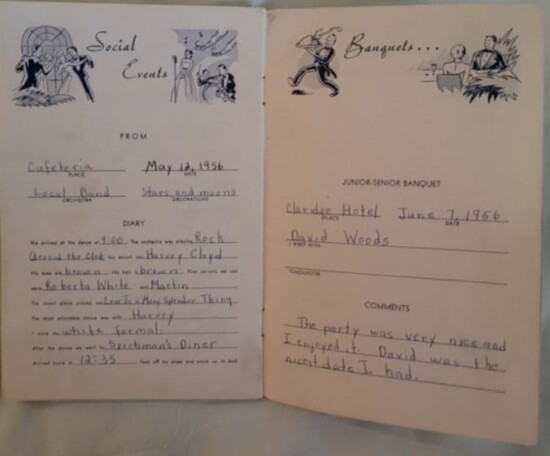 Social
Events
PROM
Cafeteria May 12, 1956
PLACE DATE
Local Band Stars and moons
ORCHESTRA DECORATIONS
DIARY
We arrived at the dance at 9:00. The orchestra was playing Rock
around the Clock My escort was Harvey Cloyd
His eyes are brown His hair is brown First persons we saw
were Roberta White and Martin
The nicest piece played was Love Is a Many Splendor Thing
The most enjoyable dance was with Harvey
I wore my white formal.
After the dance we went to Sportsman's Diner
Arrived home at 12:35 Took off my shoes and snuck up to bed.
Banquets...
JUNIOR-SENIOR BANQUET
Claridge Hotel June 7, 1956
PLACE DATE
David Woods
I WENT WITH
TOASTMASTER
COMMENTS
The party was very nice and
I enjoyed it. David was the
nicest date I had.